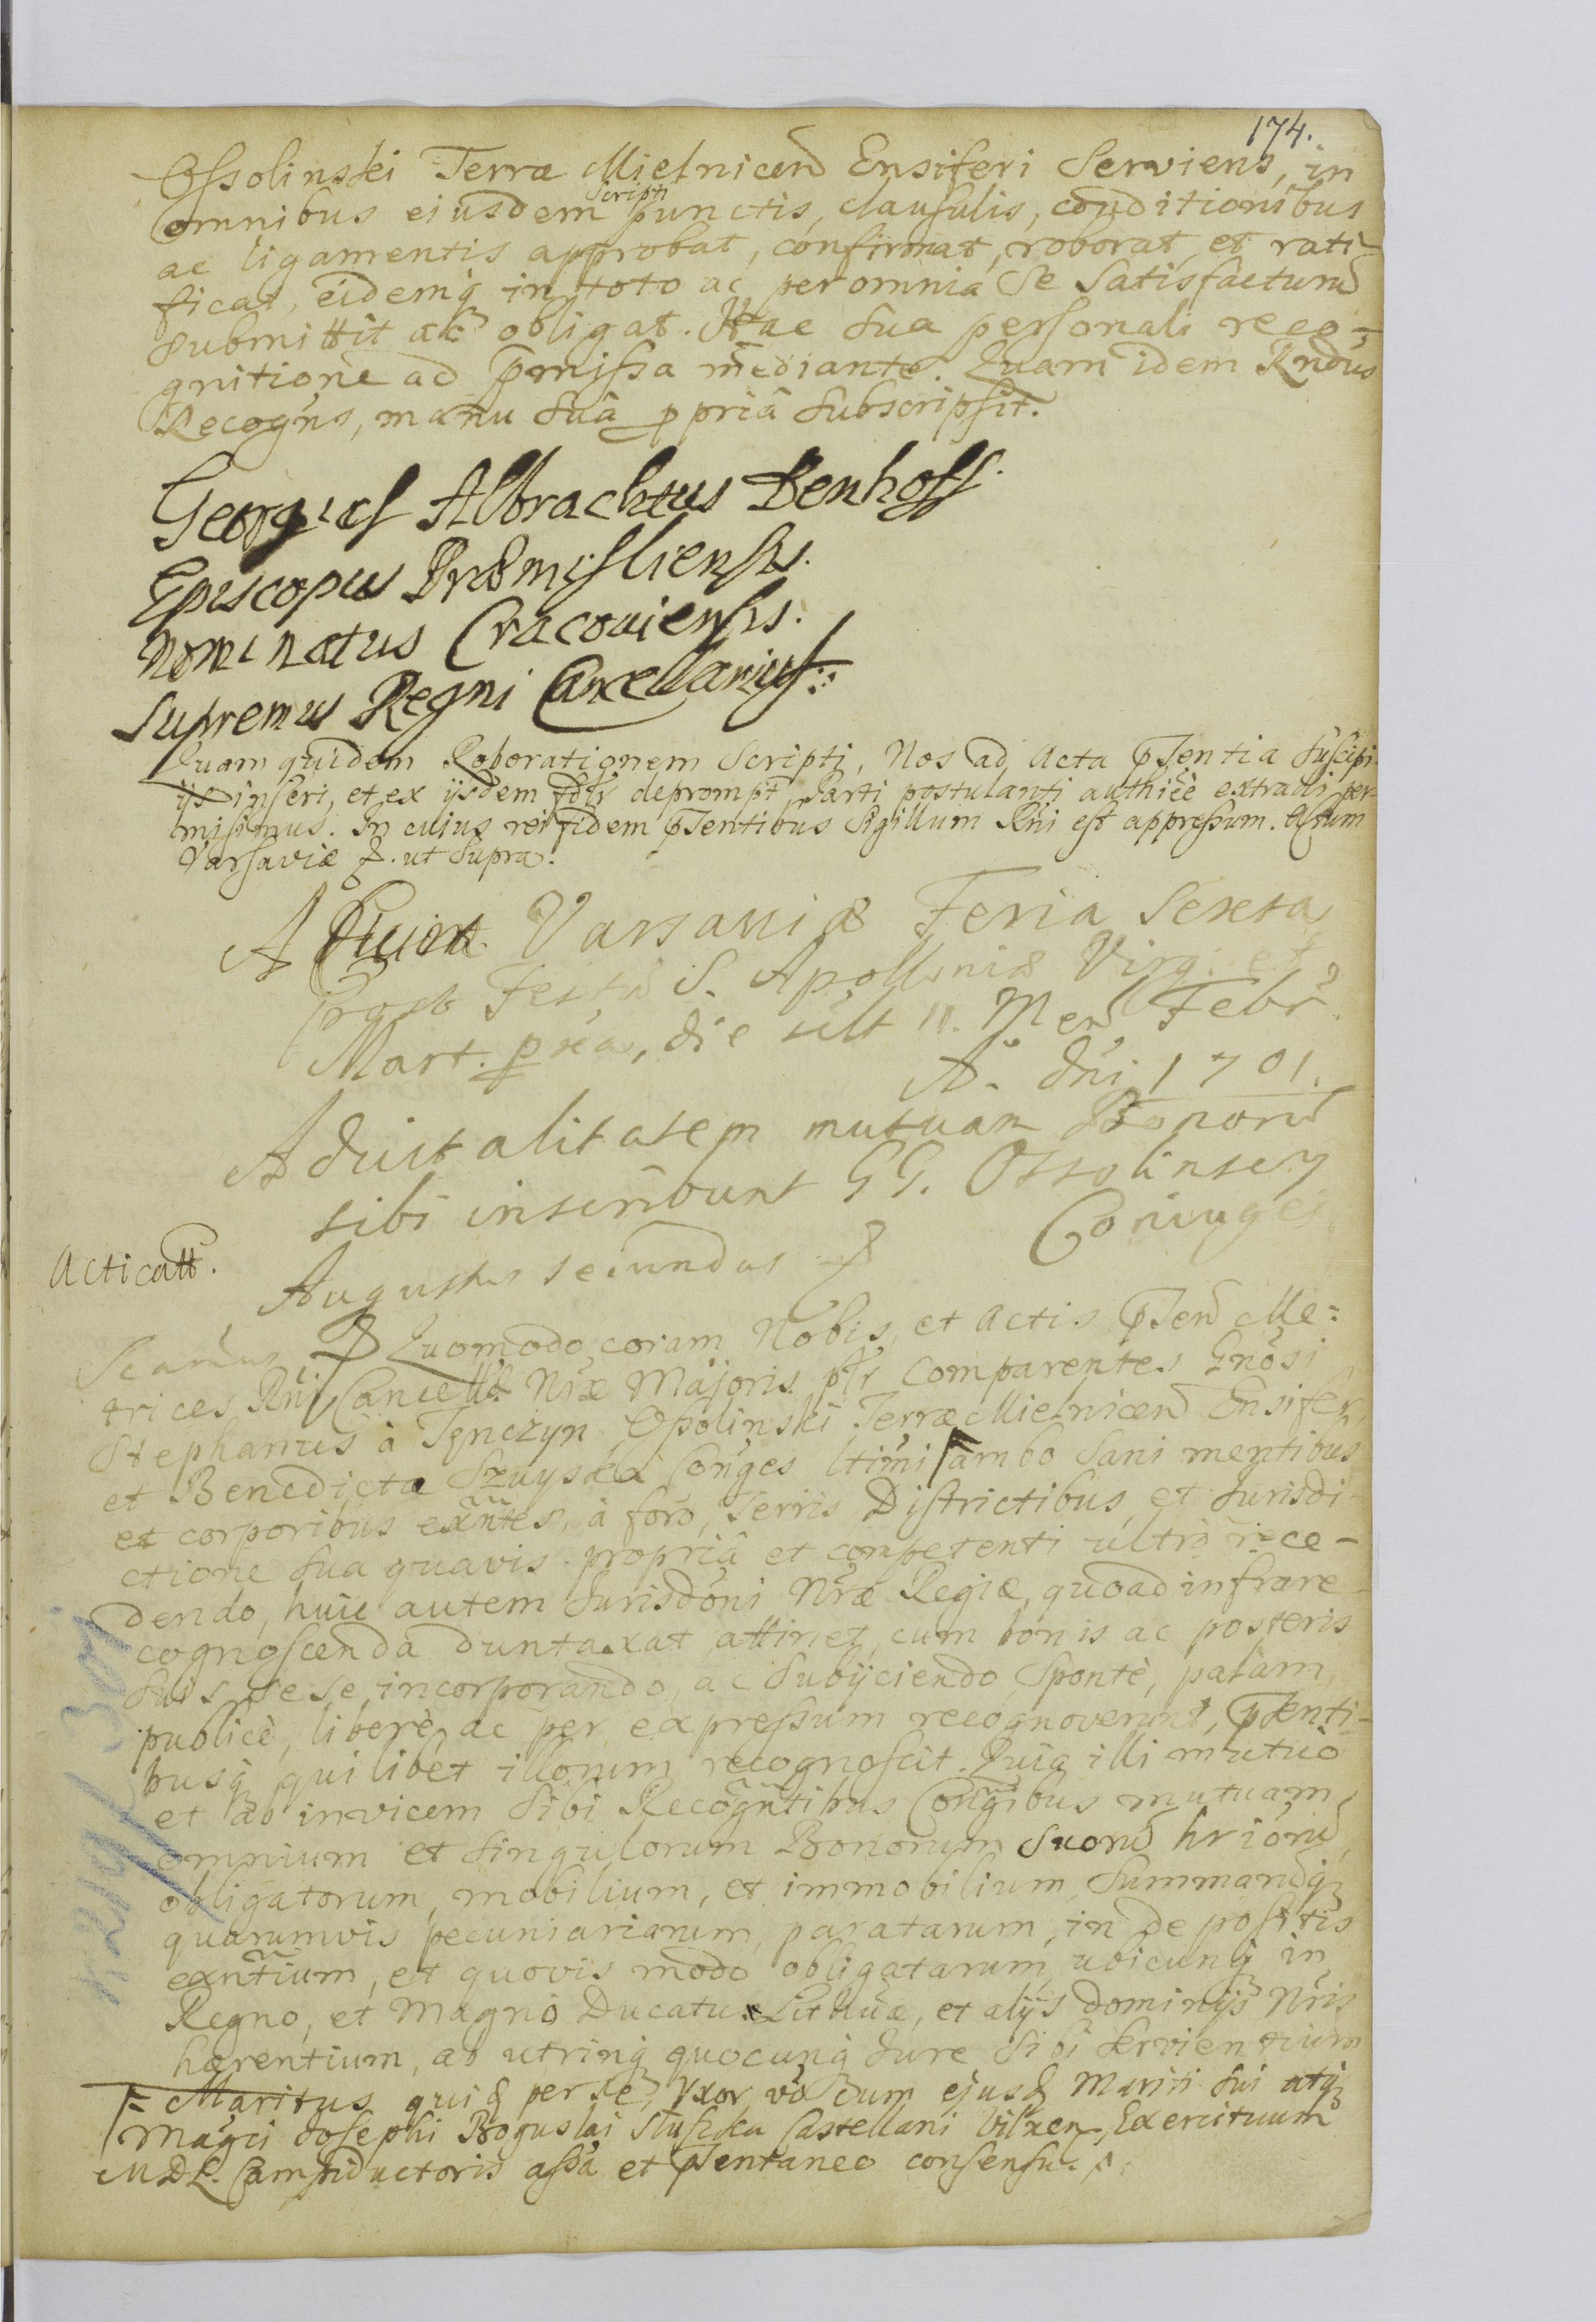 174.
Ossolinski Terræ Mielnicen̄ Ensiferi Serviens, in
omnibus eiusdem Scripti punctis, clausulis, conditionibus
ac ligamentis approbat, confirmat, roborat, et rati-
ficat, eidemq̨ in toto ac per omnia se satisfacturū
submittit ac obligat. Hac sua personali reco-
gnitione ad p̄missa mediante. Quam idem Rndus
Recogns, manu suâ ppriâ subscripsit.
Georgius Albrachtus Denhoff.
Episcopus Præmisliensis.
Nominatus Cracouiensis.
Supremus Regni Cancellarius.
Quam quidem Roborationem Scripti, Nos ad Acta p̄sentia suscipi
ijs inseri, et ex ijsdem deprompt, Parti postulanti authicè extradi per-
misimus. In cuius rei fidem p̄sentibus Sigillum Rni est appressum. Actum
Varsaviæ &. ut supra.
Actum Varsauiæ Feria Sexta
post Festū S. Apolloniæ Virg. et
Mart. pxia, die ult 11. Men̄ Febr.
A. dni 1701.
Aduitalitatem mutuam Bonorū
sibi inscribunt GG. Ossolinscy
Coniuges
Acticatt.
Augustus secundus &
Quomodo coram Nobis, et Actis p̄sen̄ Me:
trices Rni Cancellæ Nræ Majoris plr Comparentes Gnosi
Stephanus à Tęnczyn Ossolinski Terræ Mielnicen̄ Ensifer,
et Benedicta Szuyska Conges ltimi ambo sani mentibus
et corporibus exñtes, à foro, Terris Districtibus, et Jurisdi-
ctione sua quavis propriâ et competenti ultro rece-
dendo, huic autem Jurisdoni Nræ Regiæ, quoad infra re-
cognoscenda duntaxat attinet, cum bonis ac posteris
suis se se incorporando, ac subijciendo, Spontè, palam,
publicè, liberè, ac per expressum recognoverunt, p̄senti-
busq̨ quilibet illorum recognoscit. Quia illi mutuo
et ab invicem sibi Recognntibus Congibus mutuam
omnium et singulorum Bonorum suorū hriorū
obligatorum, mobilium, et immobilium, Summarumq̨
quarumvis pecuniariarum, paratarum, in depositis
exñtium, et quovis modo obligatarum, ubicunq̨ in
Regno, et Magno Ducatu Lithuæ, et alijs dominijs Nris
hærentium, ac utrinq̨ quocunq̨ Jure sibi servientium
Maritus quiđ per se, Vxor vo cum ejusđ Mariti sui atq̨
Magci Josephi Boguslai Sluszka Castellani Vilnen, Exercituum
MDL. Campiductoris assa et p̄sentaneo consensu.